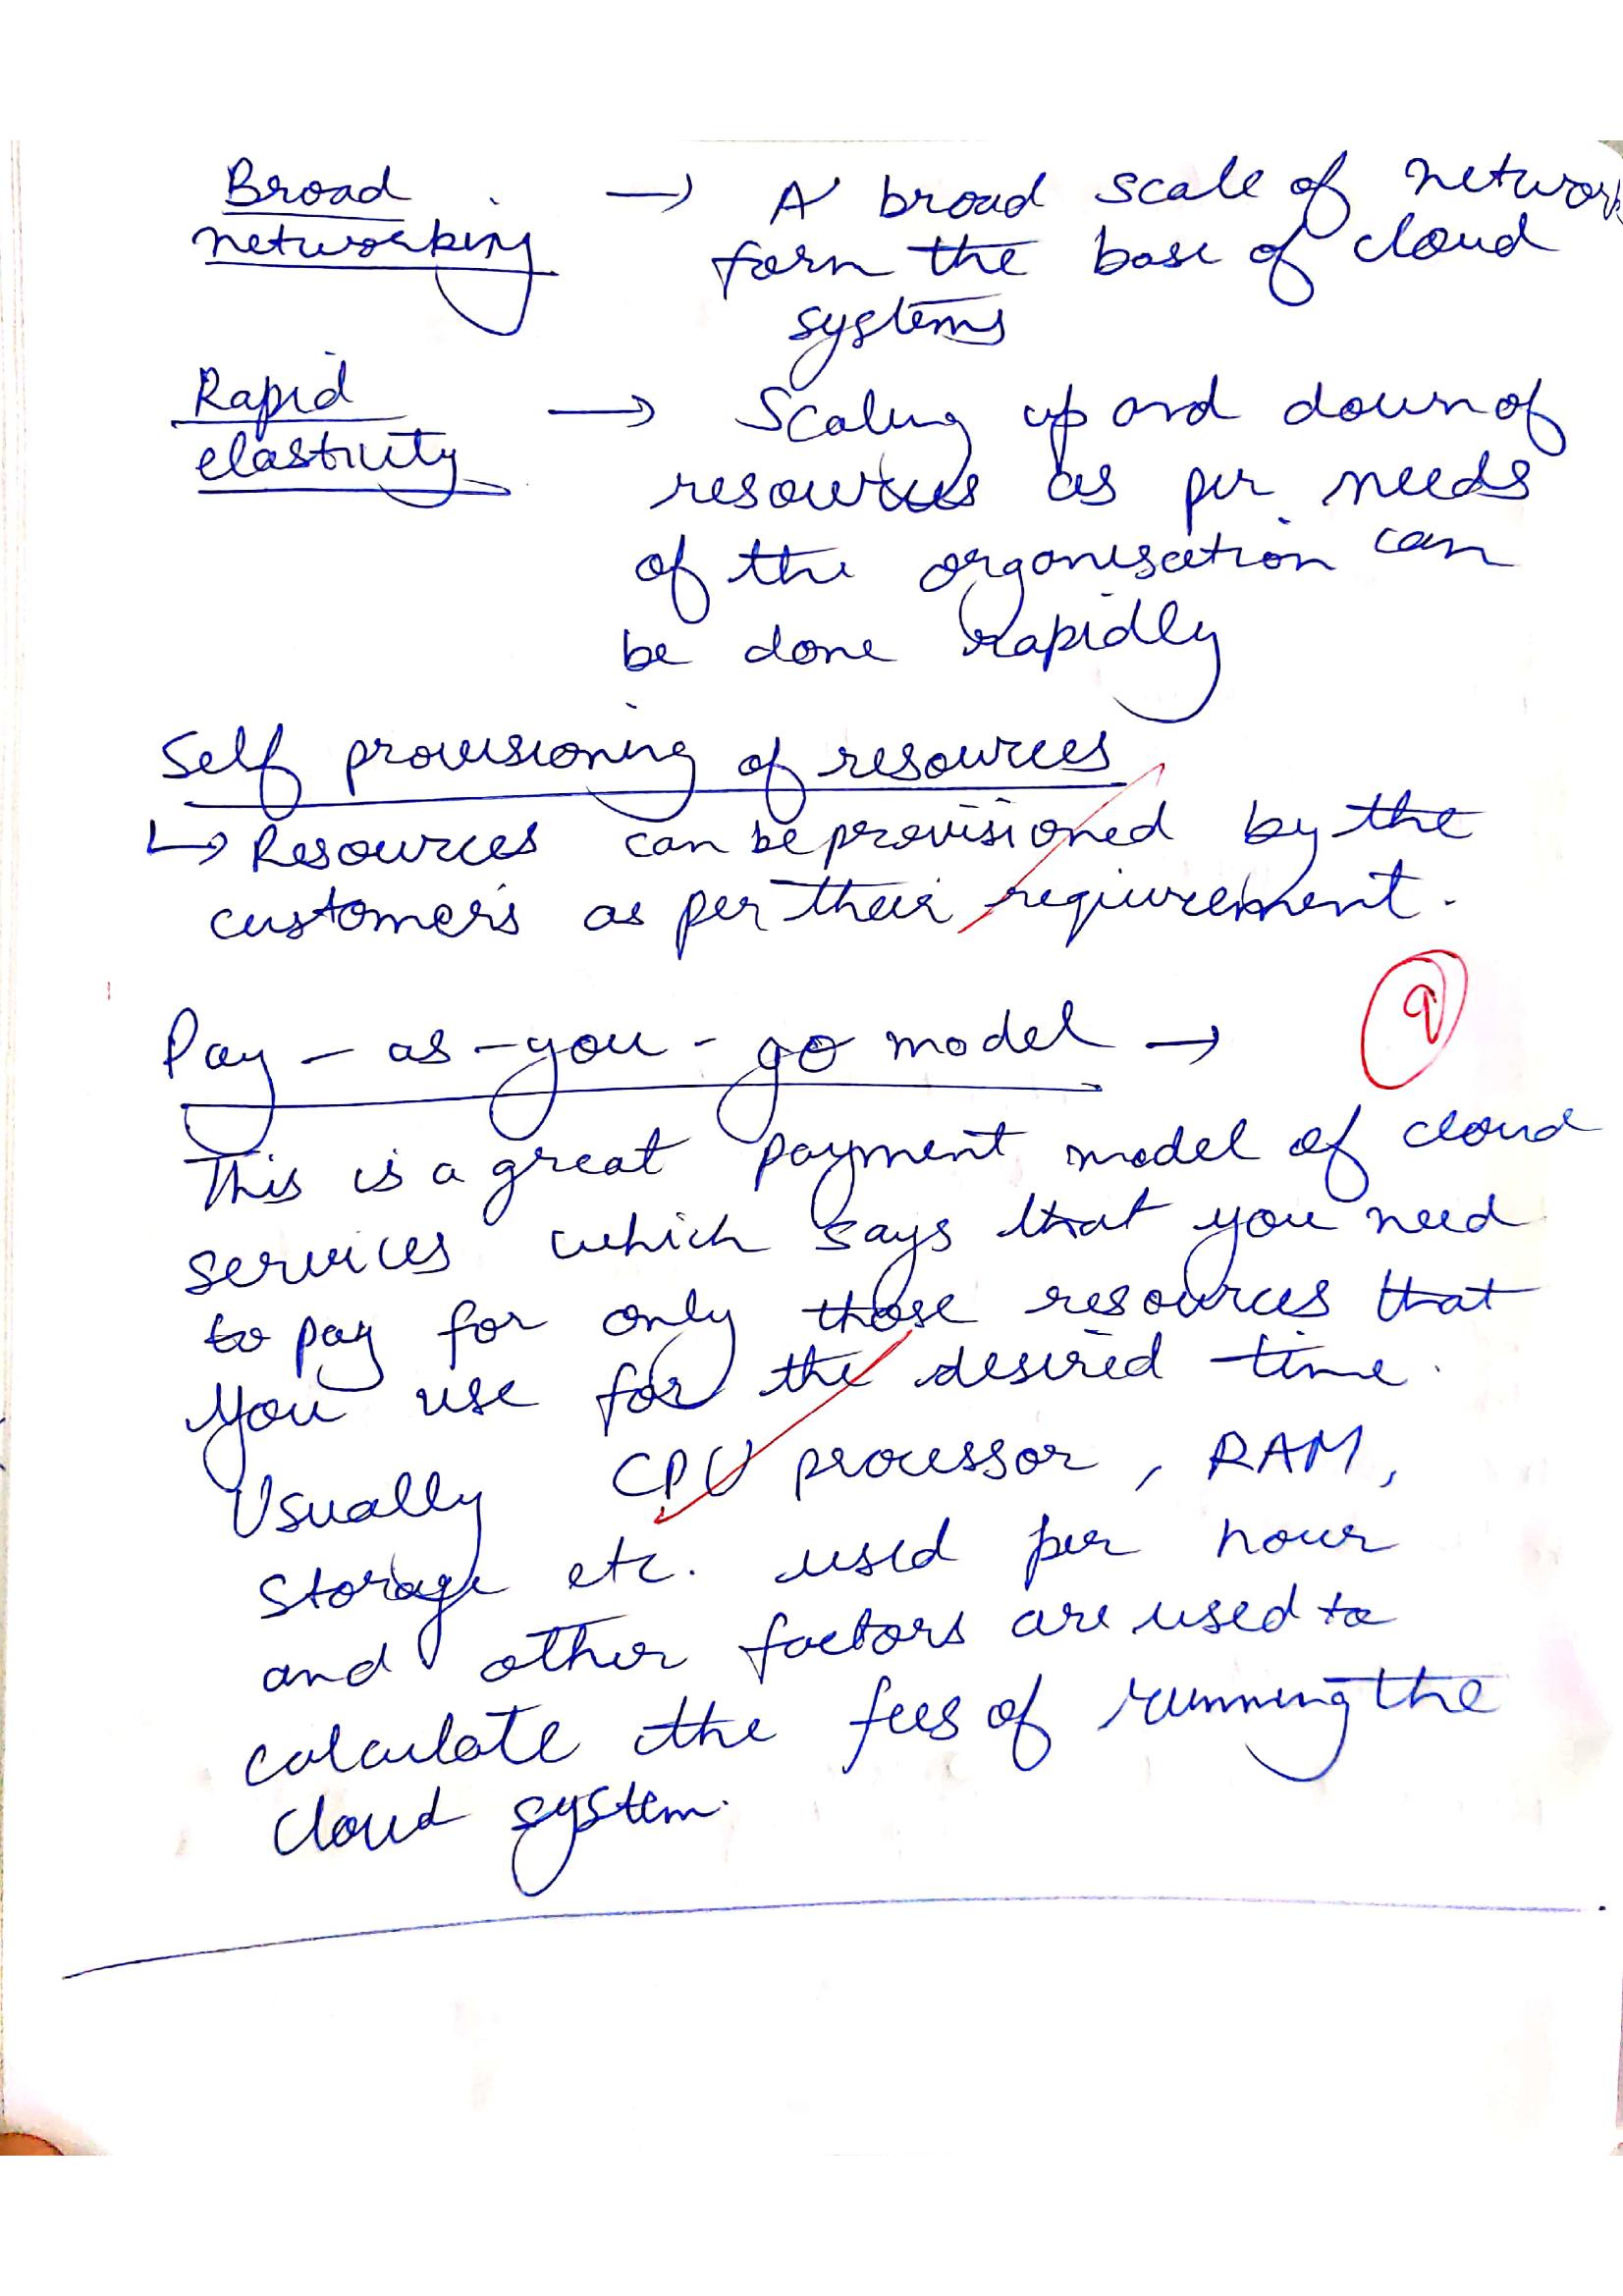 Broad → A broad scale of network
networking form the base of cloud
systems
Rapid → Scaling up and down of
elasticity resources as per needs
of the organisation can
be done rapidly
Self provisioning of resources
↳ Resources can be provisioned by the
customers as per their requirement.
9
Pay-as-you-go model →
This is a great payment model of cloud
services which says that you need
to pay for only those resources that
you use for the desired time.
Usually CPU processor, RAM,
storage etc. used per hour
and other factors are used to
calculate the fees of running the
cloud system.